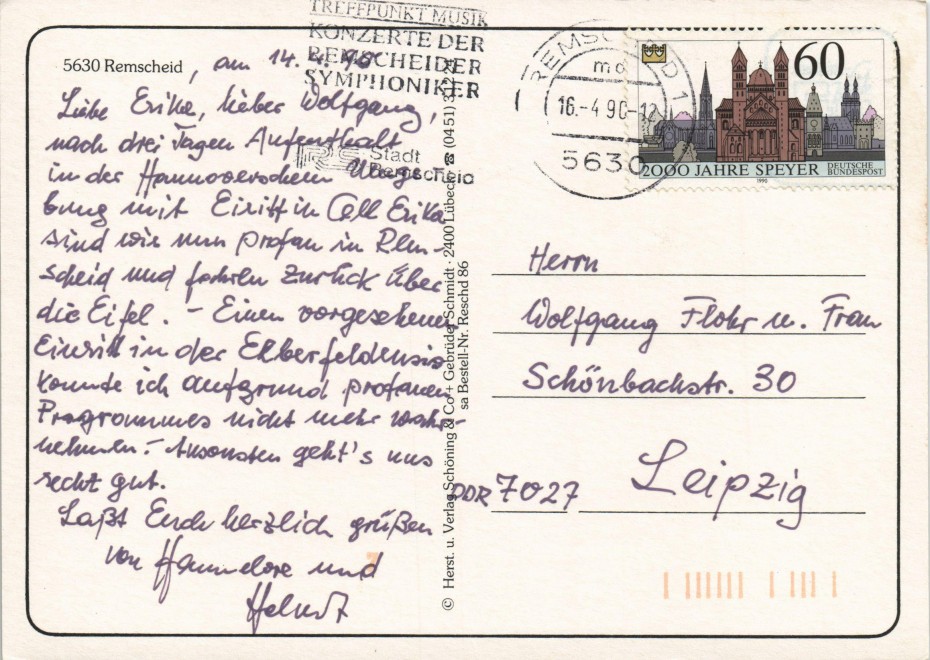 TREFFPUNKT MUSIK
KONZERTE DER
REMSCHEIDER
SYMPHONIKER
Stadt
Remscheid
REMSCHEID 1
md
16.-4.90-12
5630
60
2000 JAHRE SPEYER
DEUTSCHE
BUNDESPOST
1990
5630 Remscheid, am 14.4.90
Liebe Erika, lieber Wolfgang,
nach drei Tagen Aufenthalt
in der Hannoverschen Umge
bung mit Eiritt in Cell Erika
sind wir nun profan in Rem-
scheid und fahren zurück über
die Eifel. – Einen vorgesehenen
Einritt in der Elberfeldensia
konnte ich aufgrund profanen
Programmes nicht mehr wahr-
nehmen. – Ansonsten geht's uns
recht gut.
Laßt Euch herzlich grüßen
von Hannelore und
Helmut
© Herst. u. Verlag Schöning & Co + Gebrüder Schmidt · 2400 Lübeck ☎ (0451)
sa Bestell-Nr. Reschd 86
Herrn
Wolfgang Flohr u. Frau
Schönbachstr. 30
DDR 7027 Leipzig